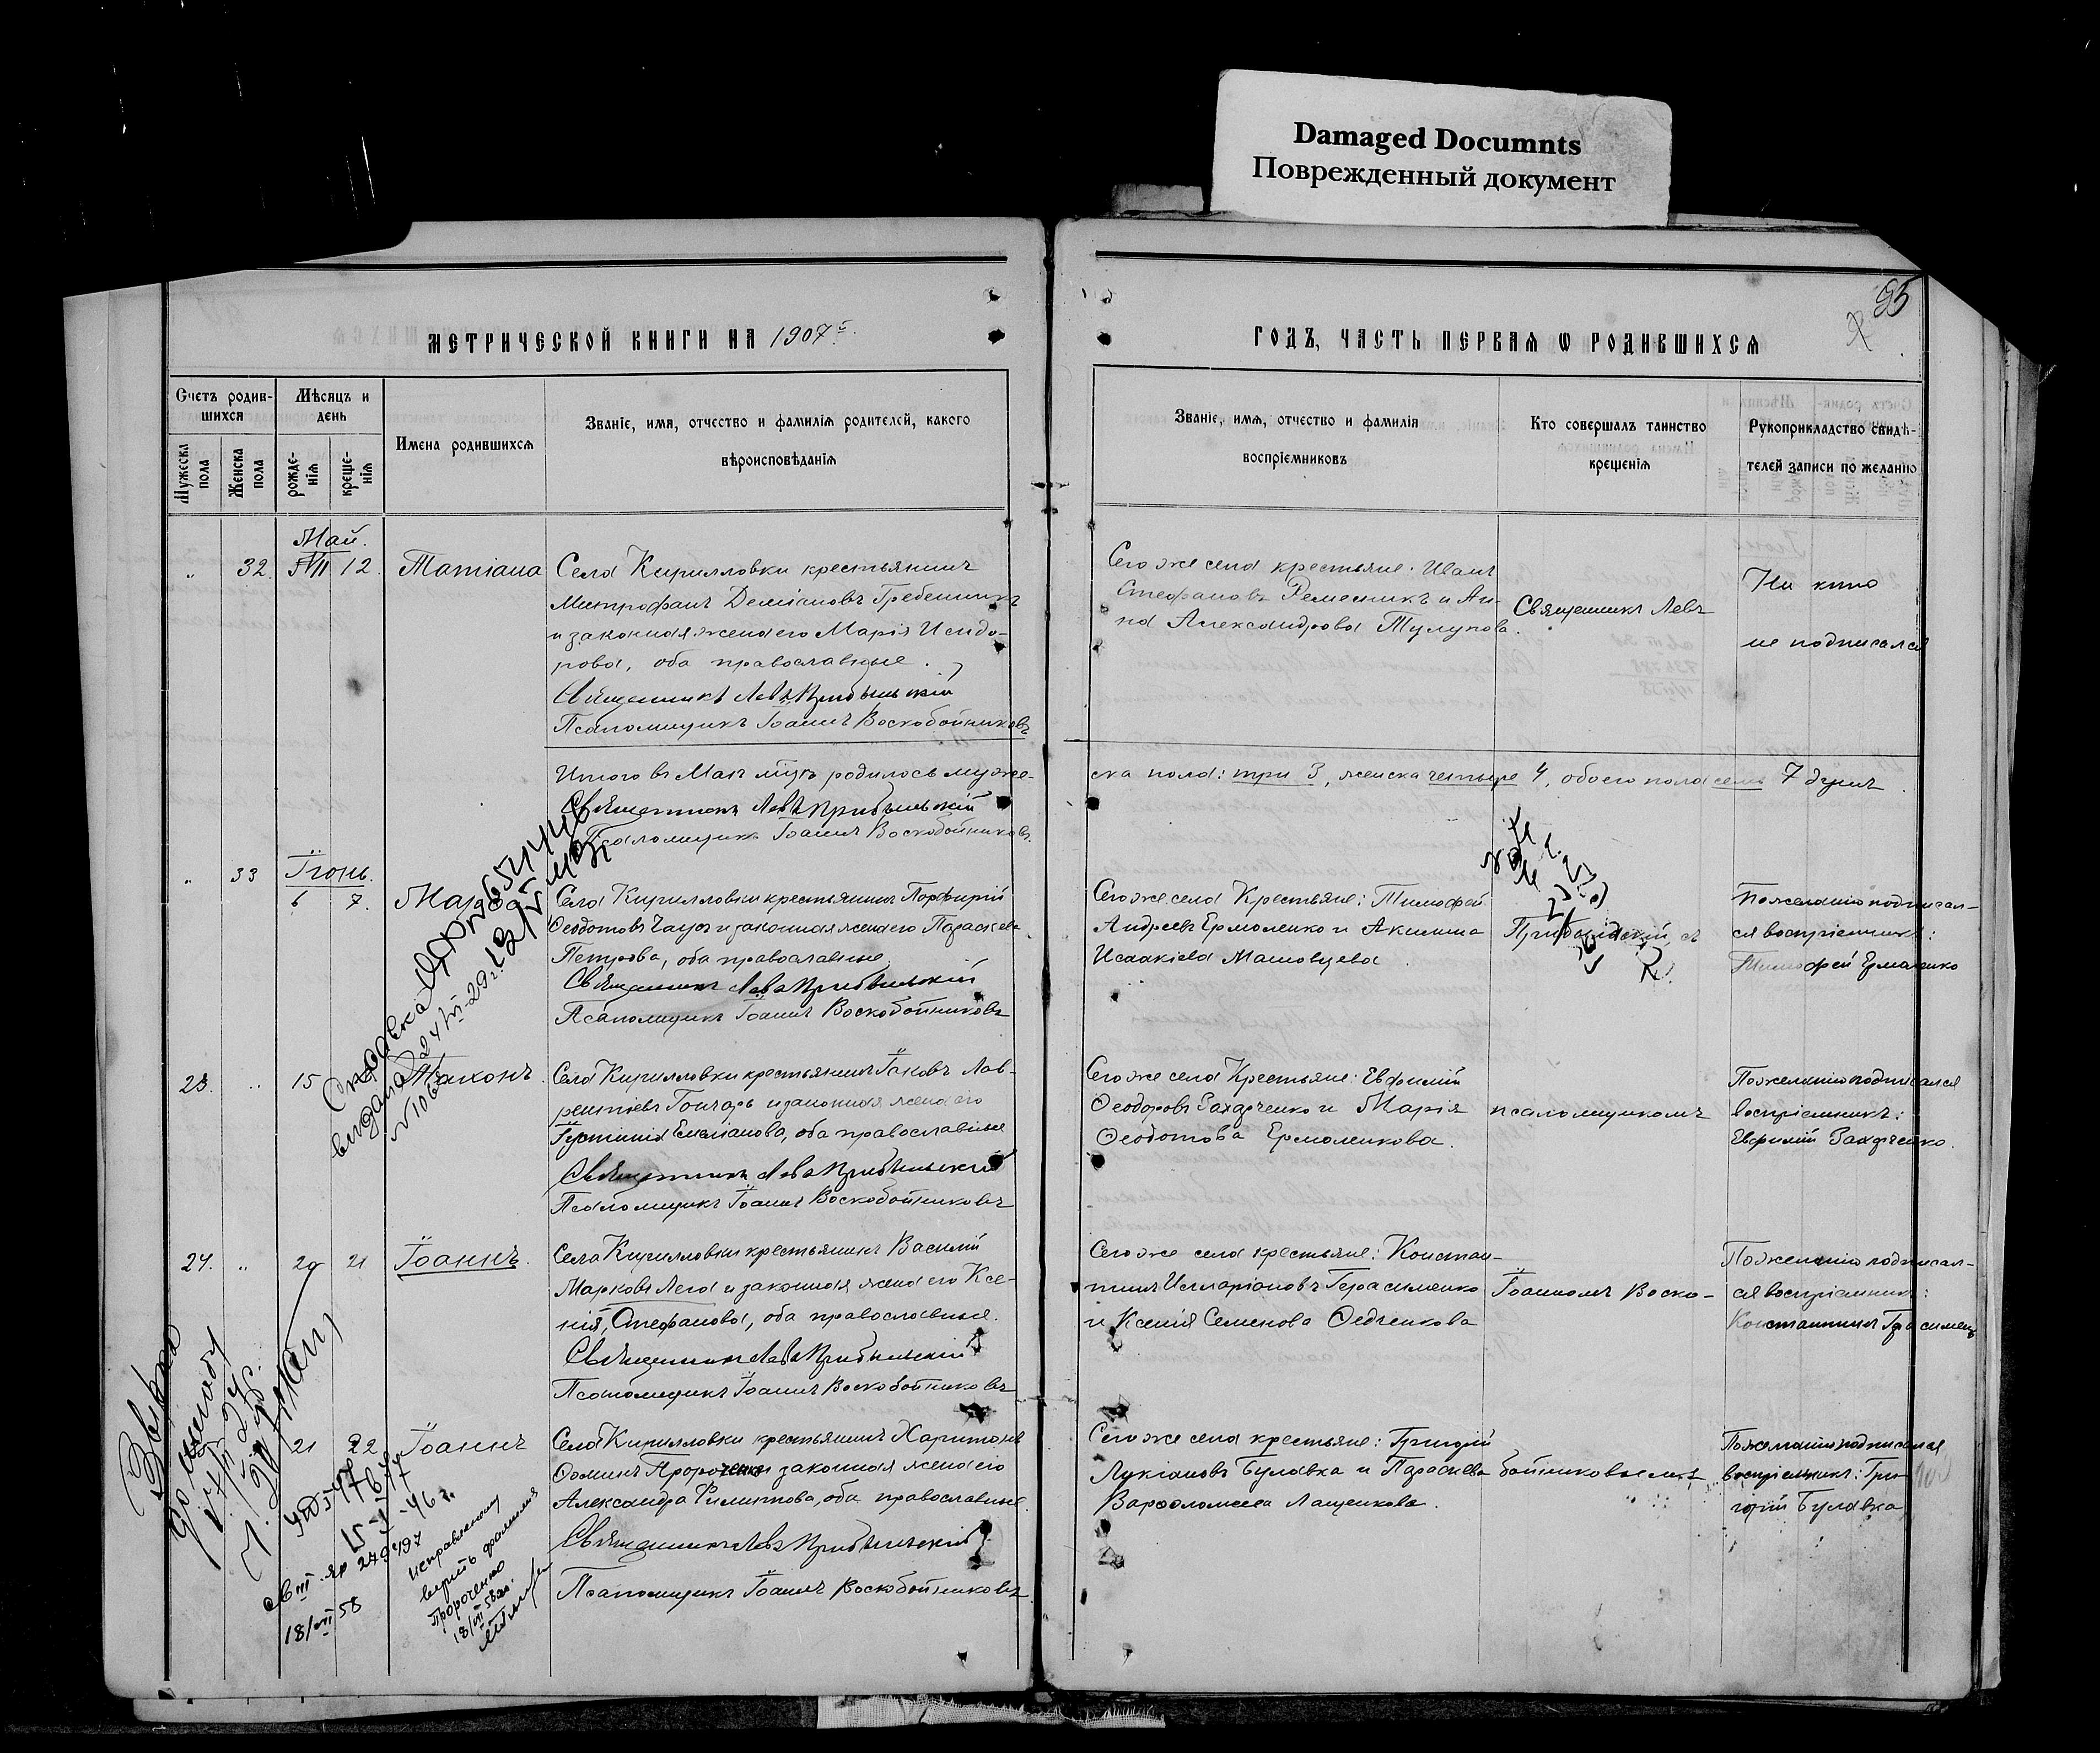 Damaged Documnts
Поврежденный документ
95
МЕТРИЧЕСКОЙ КНИГИ НА 1907 г.
ГОДЪ, ЧАСТЬ ПЕРВАЯ Ѡ РОДИВШИХСЯ
Счетъ родив-
шихся
Мужеска пола
Женска пола
Мѣсяцъ и
день
рожде-
нія
креще-
нія
Имена родившихся
Званіе, имя, отчество и фамилія родителей, какого
вѣроисповѣданія
Званіе, имя, отчество и фамилія
воспріемниковъ
Кто совершалъ таинство
крещенія
Рукоприкладство свидѣ-
телей записи по желанію
Май.
32. 12. Татіана
Села Кирилловки крестьянинъ
Митрофанъ Деміановъ Гребенникъ
и законная жена его Марія Исидо-
рова, оба православные.
Священникъ Левъ Прибыльскій
Псаломщикъ Іоаннъ Воскобойниковъ
Сего же села крестьяне: Иванъ
Стефановъ Ременникъ и Ан-
на Александрова Тулупова.
Священникъ Левъ
Ни кто
не подписался
Итого въ Маѣ м-цѣ родилось муже-
ска пола: три 3, женска четыре 4, обоего пола семь 7 душъ.
Священникъ Левъ Прибыльскій
Псаломщикъ Іоаннъ Воскобойниковъ.
Іюнь.
33 6 7. Марѳа
Села Кирилловки крестьянинъ Порфирій
Ѳеодотовъ и законная жена его Параскева
Петрова, оба православные.
Священникъ Левъ Прибыльскій
Псаломщикъ Іоаннъ Воскобойниковъ
Сего же села Крестьяне: Тимофей
Андреевъ Ермоленко и Акилина
Исаакіева Машовцева.
Прибыльскій, съ
По желанію подписал-
ся воспріемникъ:
Тимофей Ермаленко
23. 15 Тихонъ.
Села Кирилловки крестьянинъ Іаковъ Лав-
рентіевъ Гончаръ и законная жена его
Іустинія Емеліанова, оба православные
Священникъ Левъ Прибыльскій
Псаломщикъ Іоаннъ Воскобойниковъ
Сего же села Крестьяне: Евфимій
Ѳеодоровъ Захарченко и Марія
Ѳеодотова Ермоленкова.
псаломщикомъ
По желанію подписался
воспріемникъ:
Евфимій Захарченко.
24. 20 21 Іоаннъ.
Села Кирилловки крестьянинъ Василій
Марковъ Лега и законная жена его Ксе-
нія, Стефанова, оба православные.
Священникъ Левъ Прибыльскій
Псаломщикъ Іоаннъ Воскобойниковъ
Сего же села крестьяне: Констан-
тинъ Иларіоновъ Герасименко
и Ксенія Семенова Ѳедченкова
Іоанномъ Воско-
По желанію подписал-
ся воспріемникъ:
Константинъ Герасименко
21 22 Іоаннъ
Села Кирилловки крестьянинъ Харитонъ
Ѳоминъ Пророченко и законная жена его
Александра Филиппова, оба православные.
Священникъ Левъ Прибыльскій
Псаломщикъ Іоаннъ Воскобойниковъ
Сего же села крестьяне: Григорій
Лукіановъ Булавка и Параскева
Варѳоломеева Лащенкова.
бойниковымъ.
По желанію подписался
воспріемникъ: Гри-
горій Булавка
Справка
видана 24/VII-29 г.
N 1068
18/VII 58
Исправленному
верить фамилия
Пророченко
18/VII 58 г.